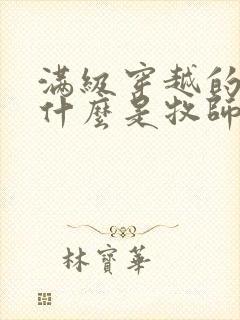 滿級穿越的
什麼是牧師
林寶華